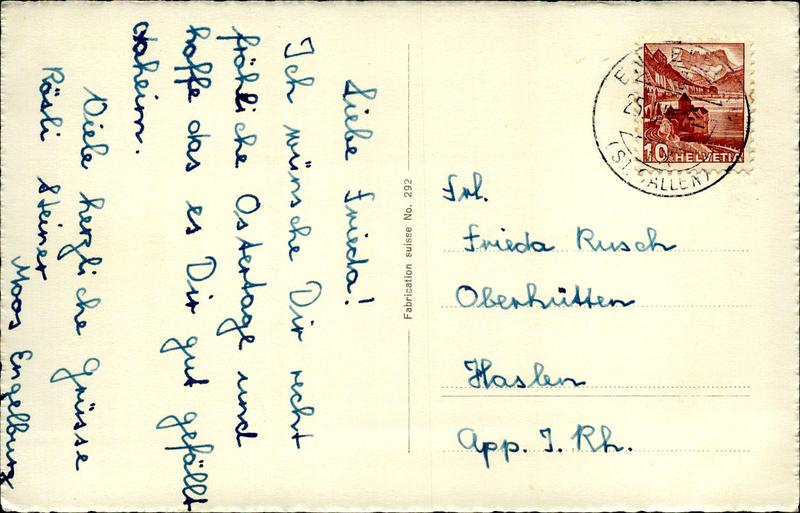 Liebe Frieda!
Ich wünsche Dir recht
fröhliche Ostertage und
hoffe das es Dir gut gefällt
daheim.
Viele herzliche Grüsse
Rösli Steiner
Moos Engelburg
Fabrication suisse No. 292
10 HELVETIA
(ST. GALLEN)
Frl.
Frieda Rusch
Oberhütten
Haslen
App. I. Rh.